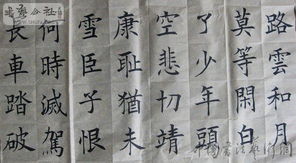 路雲和月
莫等閒白
了少年頭
空悲切靖
康耻猶未
雪臣子恨
何時滅駕
長車踏破